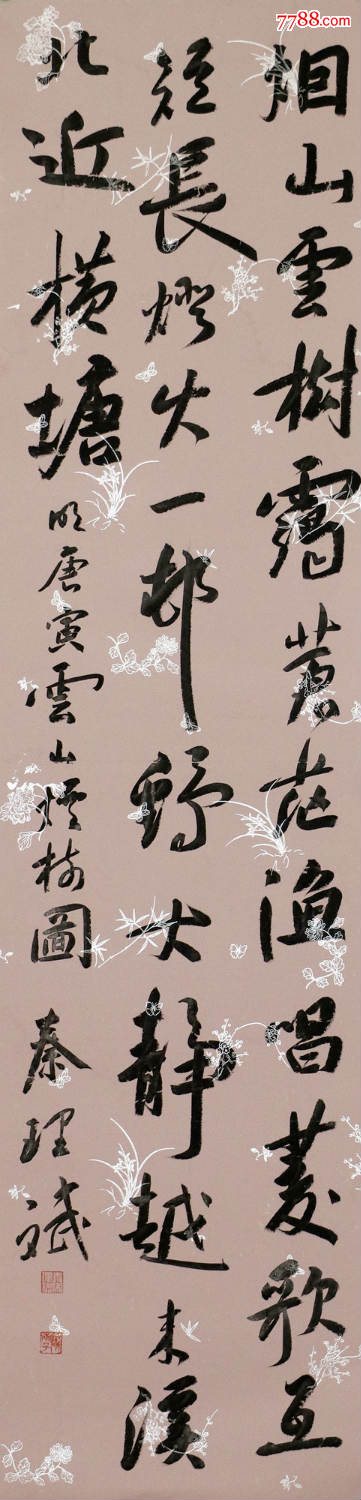 烟山雲樹靄蒼茫漁唱菱歌互
短長燈火一邨鷄犬靜越来溪
北近橫塘
明唐寅雲山烟樹圖
秦理斌
7788.com